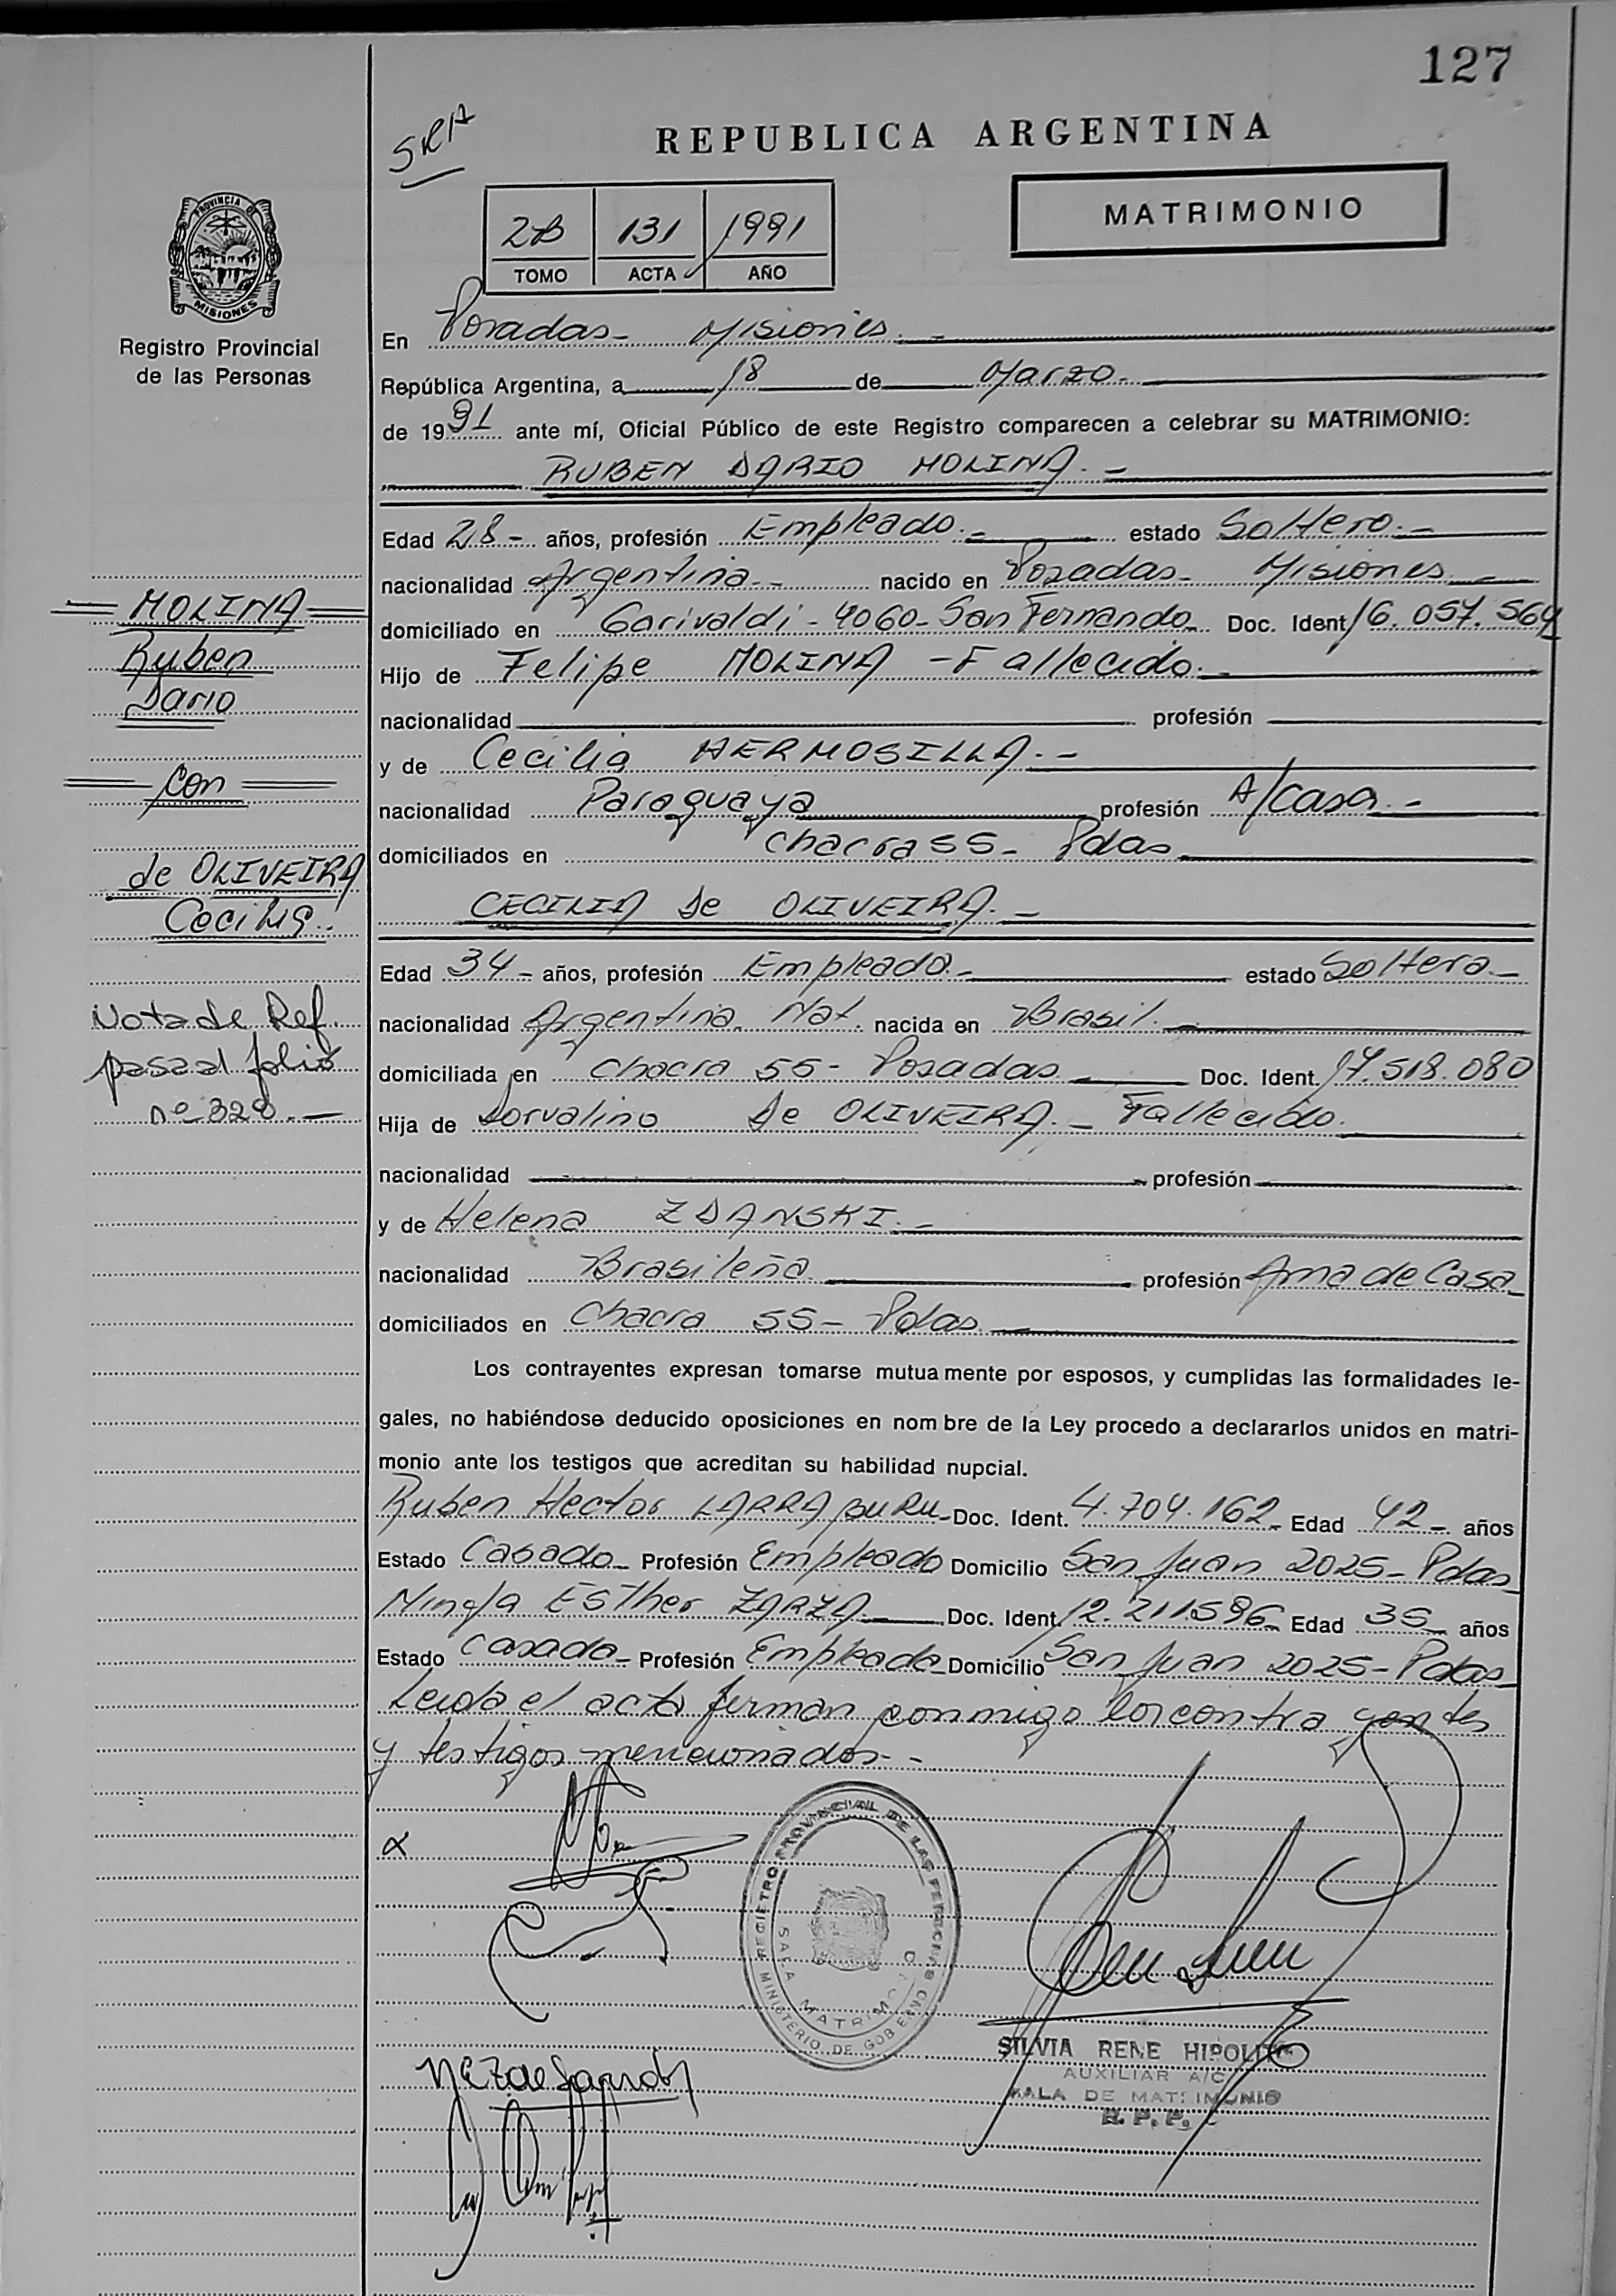 127
SRA
REPUBLICA ARGENTINA
PROVINCIA DE
MISIONES
Registro Provincial
de las Personas
2B 131 1991
TOMO ACTA AÑO
MATRIMONIO
En Posadas - Misiones.-
República Argentina, a 18 de Marzo.-
de 1991 ante mí, Oficial Público de este Registro comparecen a celebrar su MATRIMONIO:
RUBEN DARIO MOLINA.-
Edad 28- años, profesión Empleado.- estado Soltero.-
nacionalidad Argentina.- nacido en Posadas- Misiones
domiciliado en Garivaldi - 4060- San Fernando- Doc. Ident 16.057.564
Hijo de Felipe MOLINA - Fallecido.-
nacionalidad profesión
y de Cecilia HERMOSILLA.-
nacionalidad Paraguaya profesión A/casa.-
domiciliados en chacra 55- Pdas
CECILIA De OLIVEIRA.-
Edad 34- años, profesión Empleada.- estado Soltera-
nacionalidad Argentina. Nat. nacida en Brasil.-
domiciliada en chacra 55- Posadas Doc. Ident. 17.518.080
Hija de Dorvalino De OLIVEIRA.- Fallecido.
nacionalidad profesión
y de Helena ZDANSKI.-
nacionalidad Brasileña profesión Ama de Casa
domiciliados en Chacra 55- Pdas
MOLINA
Ruben
Dario
Con
de OLIVEIRA
Cecilia.
Nota de Ref.
pasa al folio
nº 328.-
Los contrayentes expresan tomarse mutuamente por esposos, y cumplidas las formalidades le-
gales, no habiéndose deducido oposiciones en nombre de la Ley procedo a declararlos unidos en matri-
monio ante los testigos que acreditan su habilidad nupcial.
Ruben Hector LARRABURU- Doc. Ident. 4.704.162- Edad 42- años
Estado Casado- Profesión Empleado Domicilio San Juan 2025- Pdas
Esther ZARZA Doc. Ident. 12.211596- Edad 35 años
Estado Casada- Profesión Empleada- Domicilio San Juan 2025- Pdas
Leida el acta firman conmigo los contrayentes
y testigos mencionados.-
REGISTRO PROVINCIAL DE LAS PERSONAS
SALA MATRIMONIO
MINISTERIO DE GOBIERNO
SILVIA RENE HIPOLITO
AUXILIAR A/C
SALA DE MATRIMONIO
R. P. P.